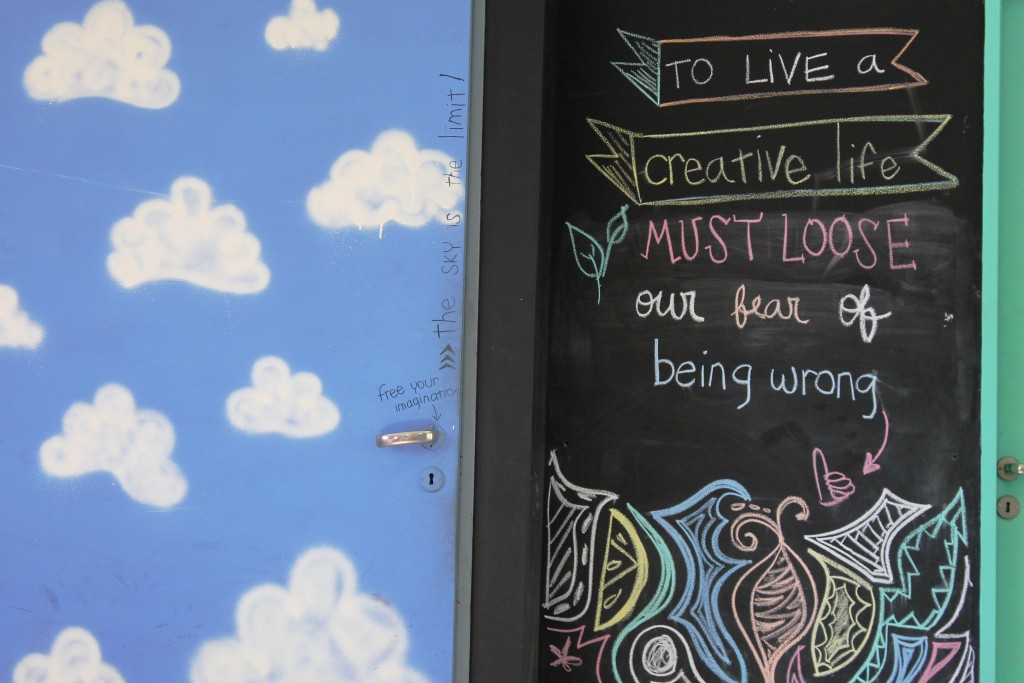 the SKY is the limit!
free your
imagination
TO LiVE a
creative life
MUST LOOSE
our fear of
being wrong